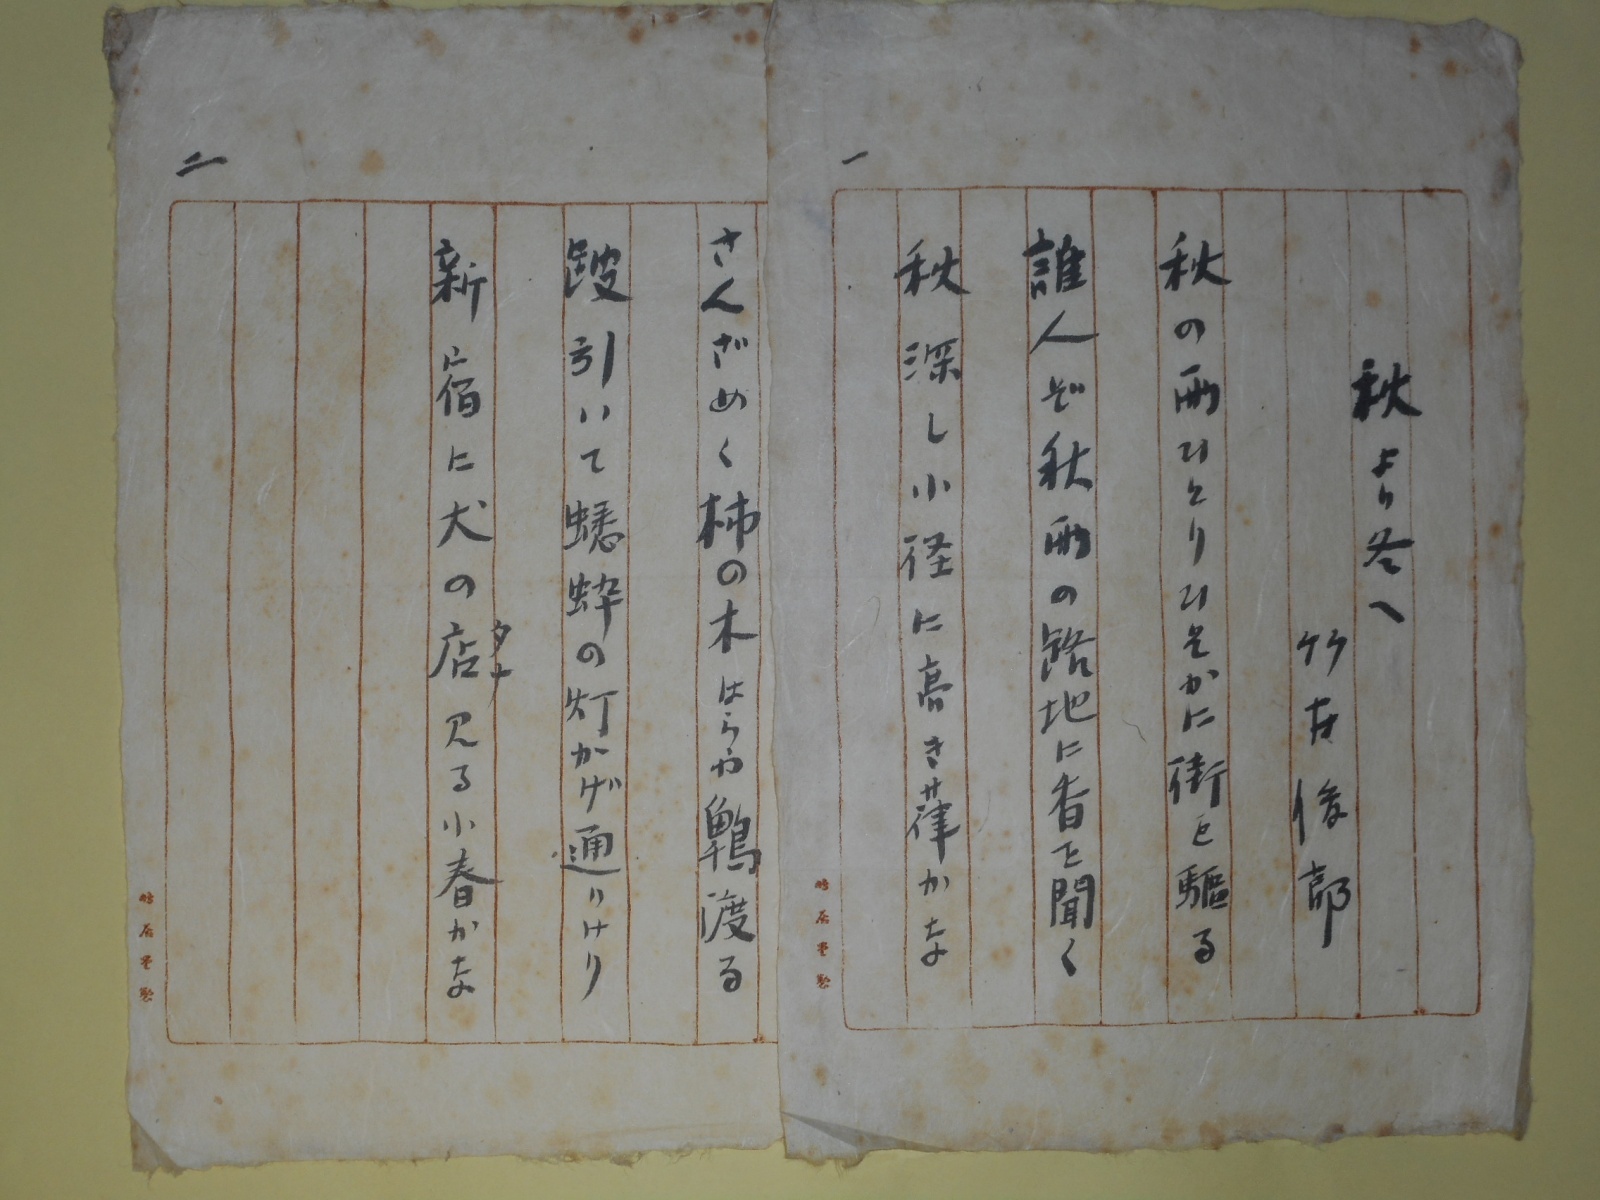 一
秋より冬へ
竹村俊郎
秋の雨ひとりひそかに街を驅る
誰人ぞ秋雨の路地に香を聞く
秋深し小径に高き葎かな
二
さんざめく柿の木はらや鵯渡る
跛引いて蟋蟀の灯かげ通りけり
新宿に犬の店見る小春かな
タナ